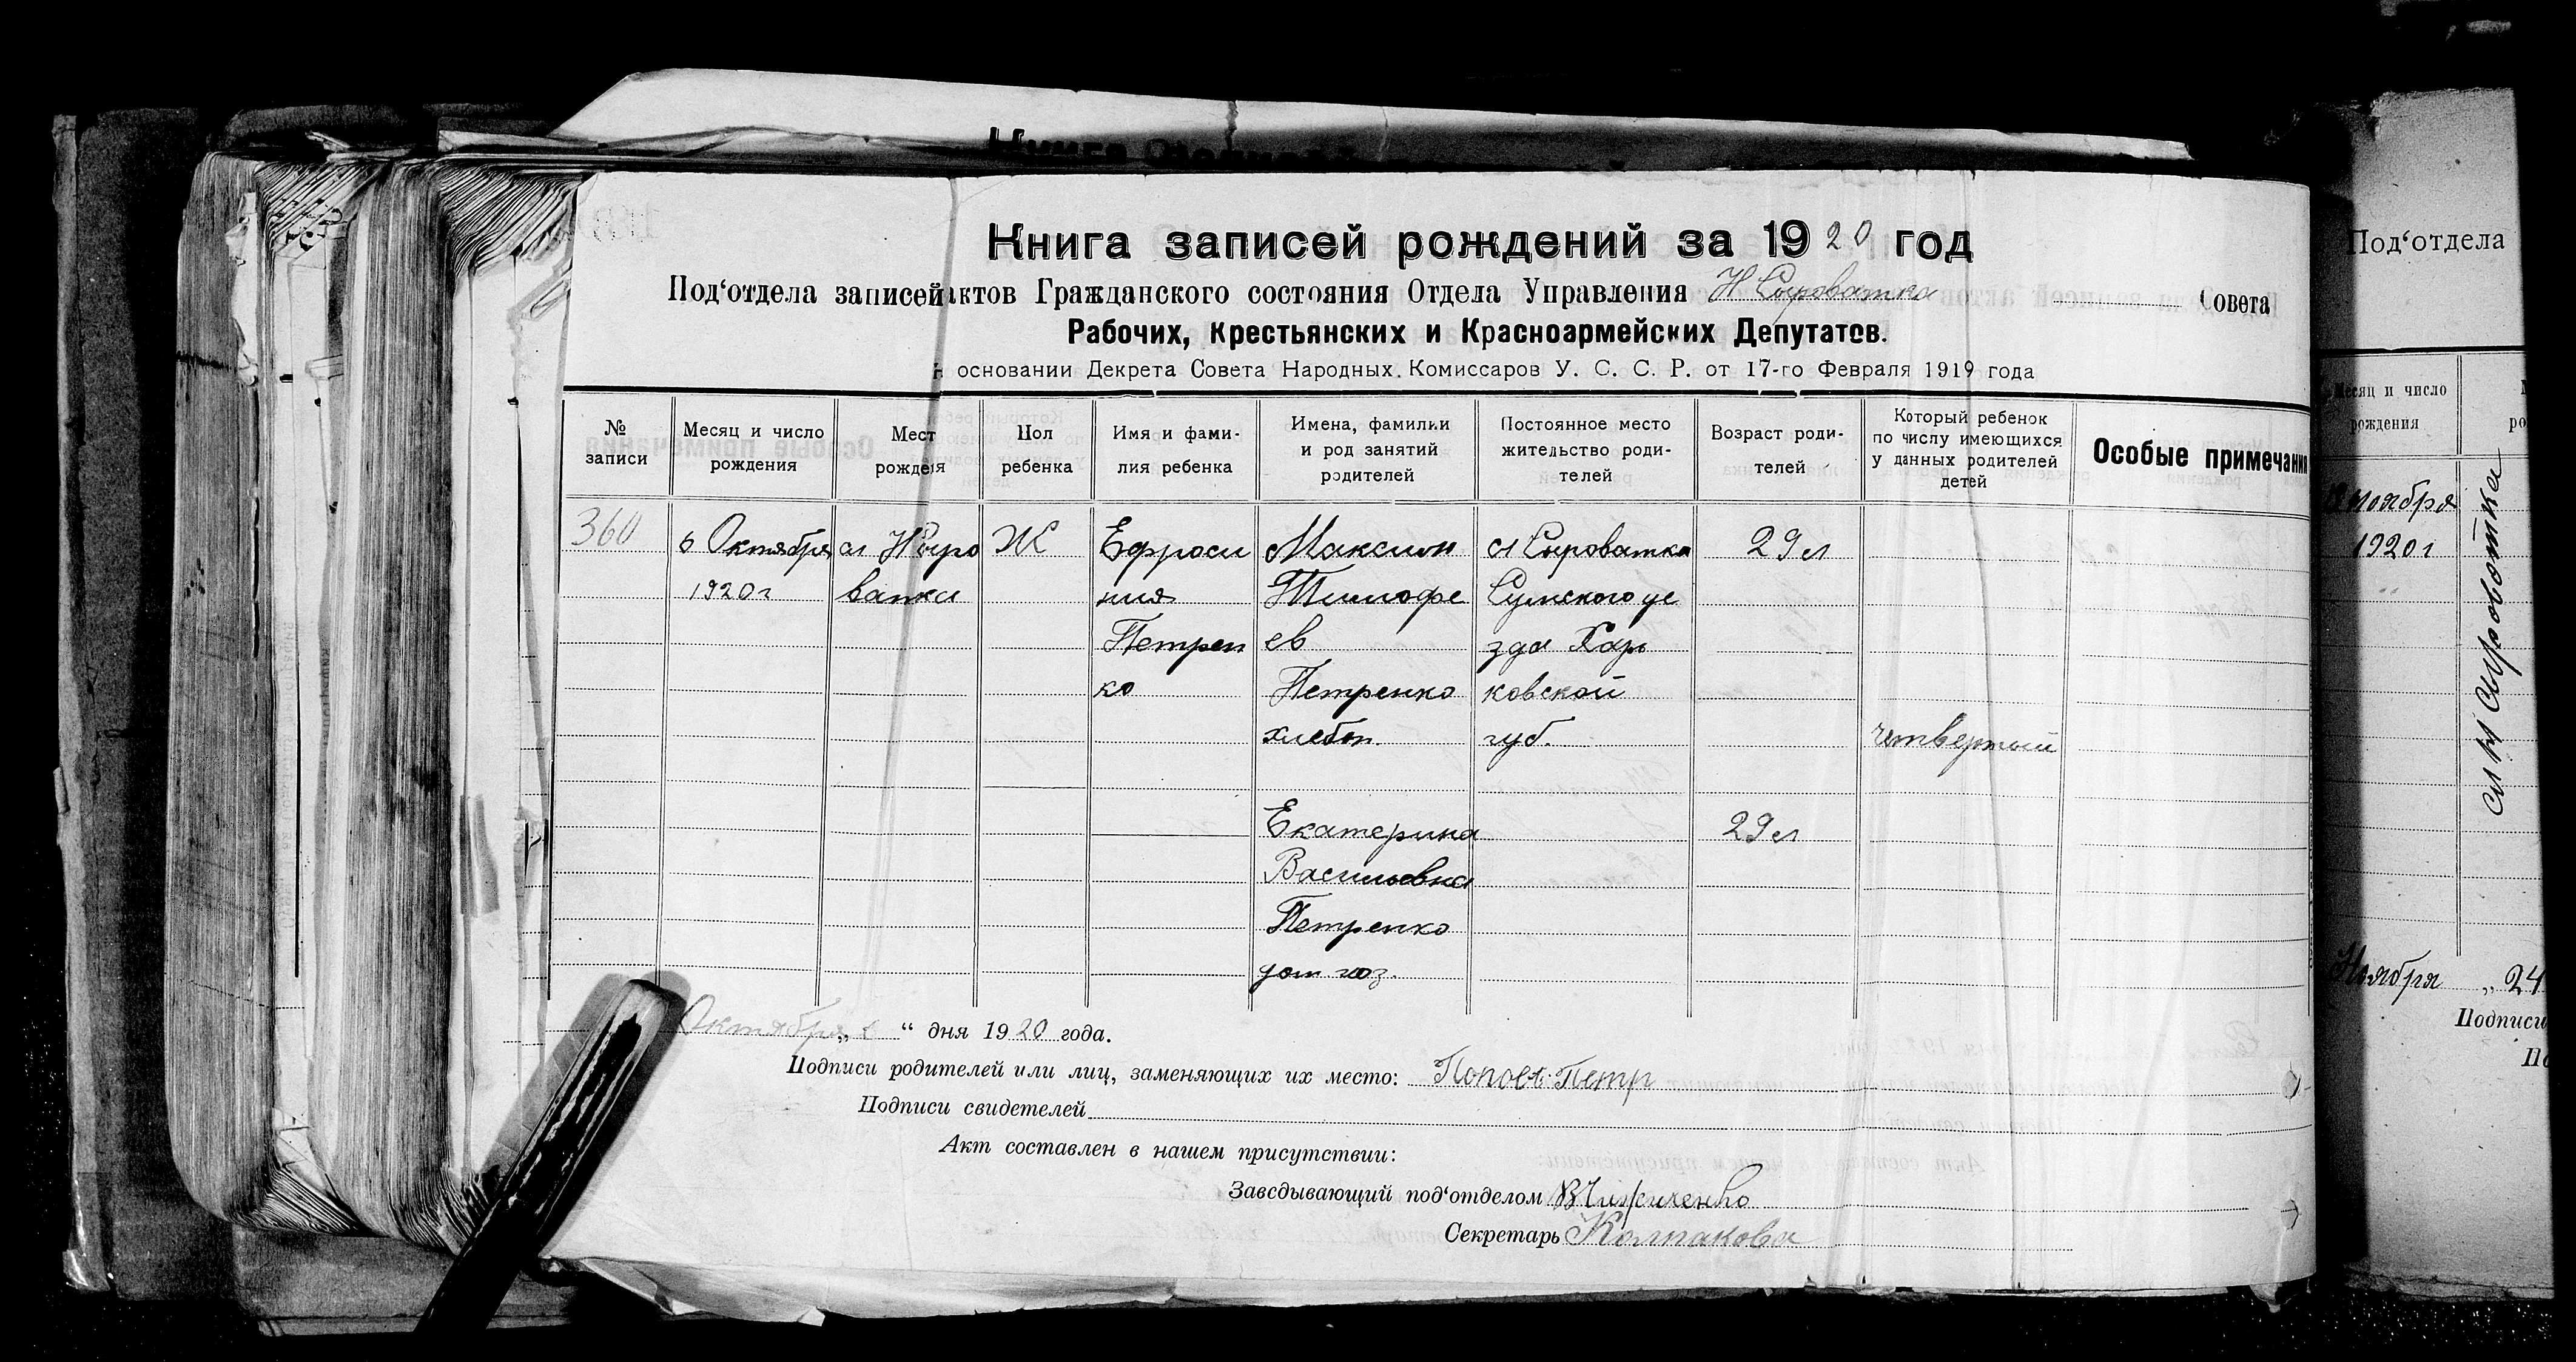 Книга записей рождений за 1920 год
Под‘отдела записей актов Гражданского состояния Отдела Управления Н Сыроватка Совета
Рабочих, Крестьянских и Красноармейских Депутатов.
основании Декрета Совета Народных Комиссаров У. С. С. Р. от 17-го Февраля 1919 года
№ записи
Месяц и число рождения
Мест рожде я
Пол ребенка
Имя и фами-
лия ребенка
Имена, фамилии
и род занятий
родителей
Постоянное место
жительство роди-
телей
Возраст роди-
телей
Который ребенок
по числу имеющихся
у данных родителей
детей
Особые примечания
360
6 Октября
1920 г
сл Н Сыро
ватка
Ж
Ефроси
ния
Петрен
ко
Максим
Тимофе
ев
Петренко
хлебоп.
сл Сыроватка
Сумского уе
зда Харь
ковской
губ.
29 л
четвертый
Екатерина
Васильевна
Петренко
дом хоз.
29 л
Октября „ 6 “ дня 1920 года.
Подписи родителей или лиц, заменяющих их место: Попов Петр
Подписи свидетелей
Акт составлен в нашем присутствии:
Заведывающий под‘отделом
Секретарь Колпакова
Под‘отдела
Месяц и число
рождения
ноября
1920 г
сл Н Сыроватка
Ноября „ 24
Подписи